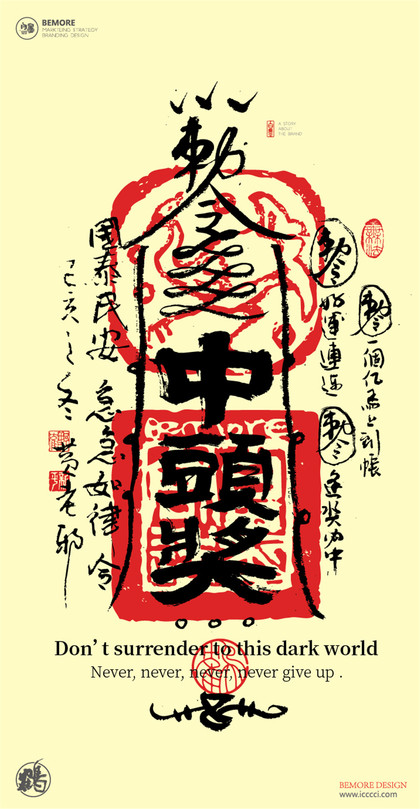 BEMORE
MARKETING STRATEGY
BRANDING DESIGN
A STORY
ABOUT
THE BRAND
勅令
中頭奨
勅令 好運連連
勅令 一個億馬上到帳
勅令 逢奨必中
國泰民安 急急如律令
己亥之冬
Bemore
Don't surrender to this dark world
Never, never, never, never give up .
BEMORE DESIGN
www.icccci.com